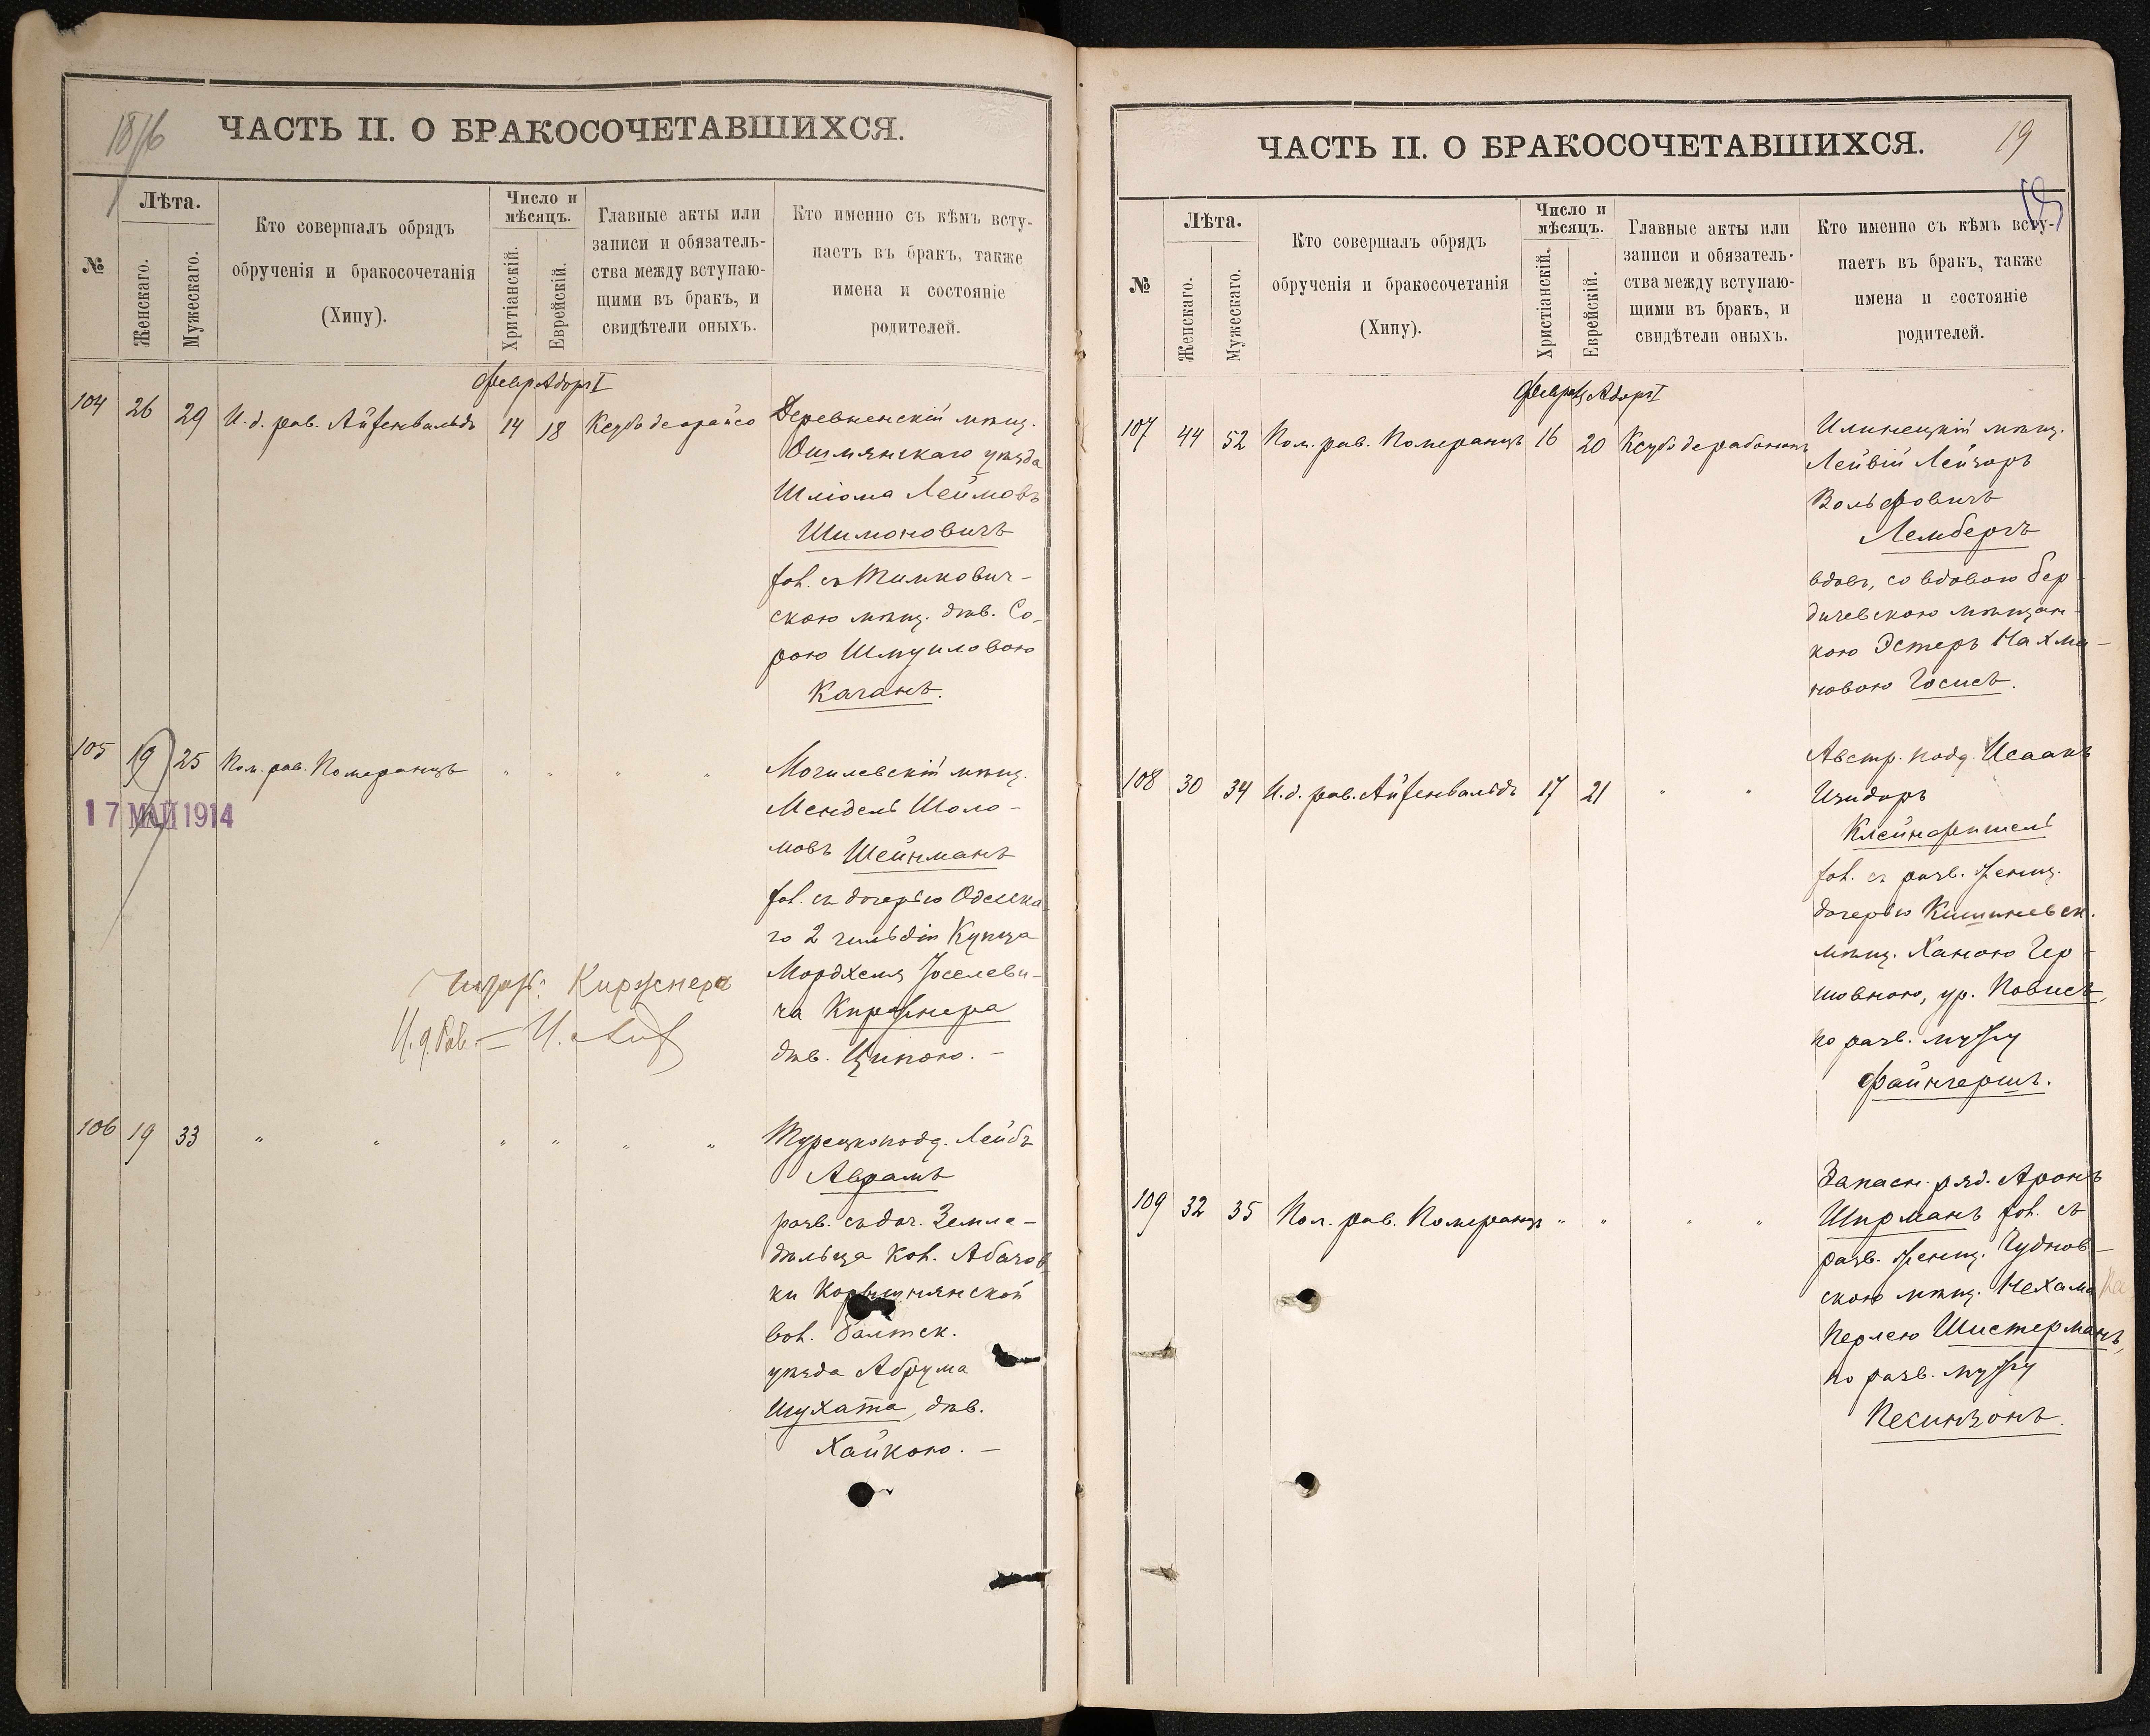 18/16
ЧАСТЬ II. О БРАКОСОЧЕТАВШИХСЯ.
№
Лѣта.
Женскаго.
Мужескаго.
Кто совершалъ обрядъ
обрученія и бракосочетанія
(Хипу).
Число и
мѣсяцъ.
Хритіанскій.
Еврейскій.
Главные акты или
записи и обязатель-
ства между вступаю-
щими въ бракъ, и
свидѣтели оныхъ.
Кто именно съ кѣмъ всту-
паетъ въ бракъ, также
имена и состояніе
родителей.
Февр Адоръ I
104 26 29 И. д. рав. Айзенвальдъ 14 18 Ксубо деорайсо
Деревненскій мѣщ.
Ошмянскаго уѣзда
Шліома Леймовъ
Шимоновичъ
хол. съ Тимкович-
скою мѣщ. дѣв. Со-
рою Шмуиловою
Каганъ.
105 19 25 Пом. рав. Померанцъ " " " "
17 МАЙ 1914
Могилевскій мѣщ.
Мендель Шоло-
мовъ Шейнманъ
хол. съ дочерью Одесска-
го 2 гильдіи Купца
Мордхеля Іоселеви-
ча Киржнера
дѣв. Ципою. —
Киржнера
И. д. Рав.
106 19 33 " " " " " "
Турецкоподд. Лейбъ
Аврамъ
разв. съ доч. Земле-
дѣльца кол. Абазов-
ки
вол. Балтск.
уѣзда Абрума
Шухата, дѣв.
Хайкою. —
ЧАСТЬ II. О БРАКОСОЧЕТАВШИХСЯ.
19
№
Лѣта.
Женскаго.
Мужескаго.
Кто совершалъ обрядъ
обрученія и бракосочетанія
(Хипу).
Число и
мѣсяцъ.
Христіанскій.
Еврейскій.
Главные акты или
записи и обязатель-
ства между вступаю-
щими въ бракъ, и
свидѣтели оныхъ.
Кто именно съ кѣмъ всту-
паетъ въ бракъ, также
имена и состояніе
родителей.
Февраль Адоръ I
107 44 52 Пом. рав. Померанцъ 16 20 Ксубо дерабононъ
Илинецкій мѣщ.
Лейвій Лейзоръ
Вольфовичъ
Лембергъ
вдов., со вдовою бер-
дичевскою мѣщан-
кою Эстеръ Нахма-
новою Госисъ.
108 30 34 И. д. рав. Айзенвальдъ 17 21 " "
Австр. подд. Исаакъ
Изидоръ
Клейнфишель
хол. съ разв. женщ.
дочерью Кишиневск.
мѣщ. Ханою Гер-
шовною, ур. Повисъ,
по разв. мужу
Файнгершъ.
109 32 35 Пом. рав. Померанцъ " " " "
Запасн. ряд. Аронъ
Ширманъ хол. съ
разв. женщ. Чуднов-
скою мѣщ. Нехама
Перлею Шистерманъ,
по разв. мужу
Пекинзонъ.